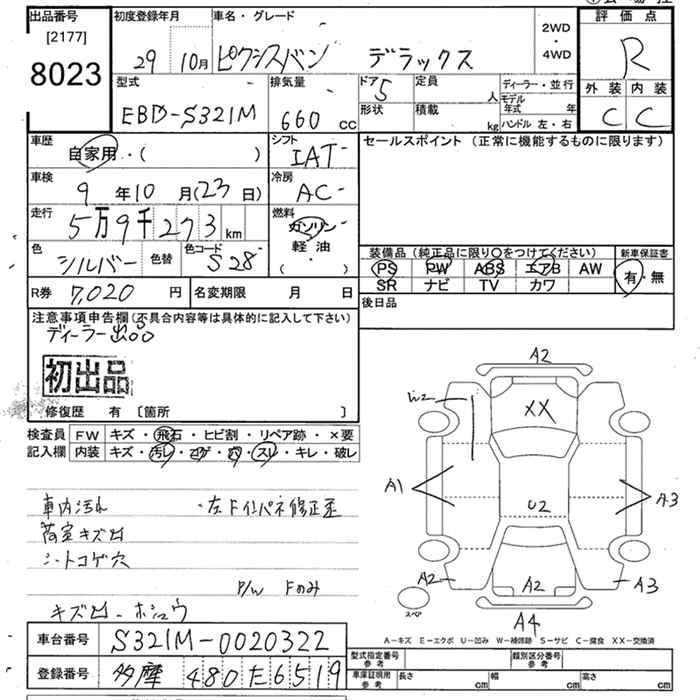 出品番号 初度登録年月 車名・グレード 2WD・4WD 評価点
[2177]
8023 29 10月 ピクシスバン デラックス R
型式 排気量 ドア 5 定員 人 ディーラー・並行 外装 内装
EBD-S321M 660 cc 形状 積載 kg モデル年式 年 ハンドル 左・右 C C
車歴 自家用・( ) シフト IAT セールスポイント (正常に機能するものに限ります)
車検 9年10月(23日) 冷房 AC
走行 5万9千273km 燃料 ガソリン
色 シルバー 色替 色コード S28 軽油 ( ・ )
装備品(純正品に限り○をつけてください) 新車保証書
PS PW ABS エアB AW 有・無
SR ナビ TV カワ
R券 7,020円 名変期限 月 日 後日品
注意事項申告欄(不具合内容等は具体的に記入して下さい)
ディーラー出品
初出品
修復歴 有 〔箇所 〕
検査員 FW キズ・飛石・ヒビ割・リペア跡・×要
記入欄 内装 キズ・汚レ・コゲ・穴・スレ・キレ・破レ
車内汚れ ・左Fインパネ修正歪
荷室キズ凹
シートコゲ穴
P/W Fのみ
キズ凹 ホシュウ
A2
W2 XX
A1 U2 A3
A2 A2 A3
スペア A4
A-キズ E-エクボ U-凹み W-補修跡 S-サビ C-腐食 XX-交換済
車台番号 S321M-0020322
型式指定番号 参考 類別区分番号 参考
登録番号 多摩 480 E 6519
車庫証明用 参考 長さ cm 幅 cm 高さ cm